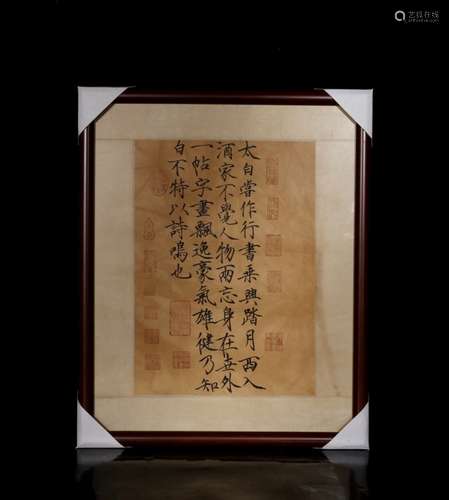 太白嘗作行書乘興踏月西入
酒家不覺人物兩忘身在世外
一帖字畫飄逸豪氣雄健乃知
白不特以詩鳴也
艺狐在线